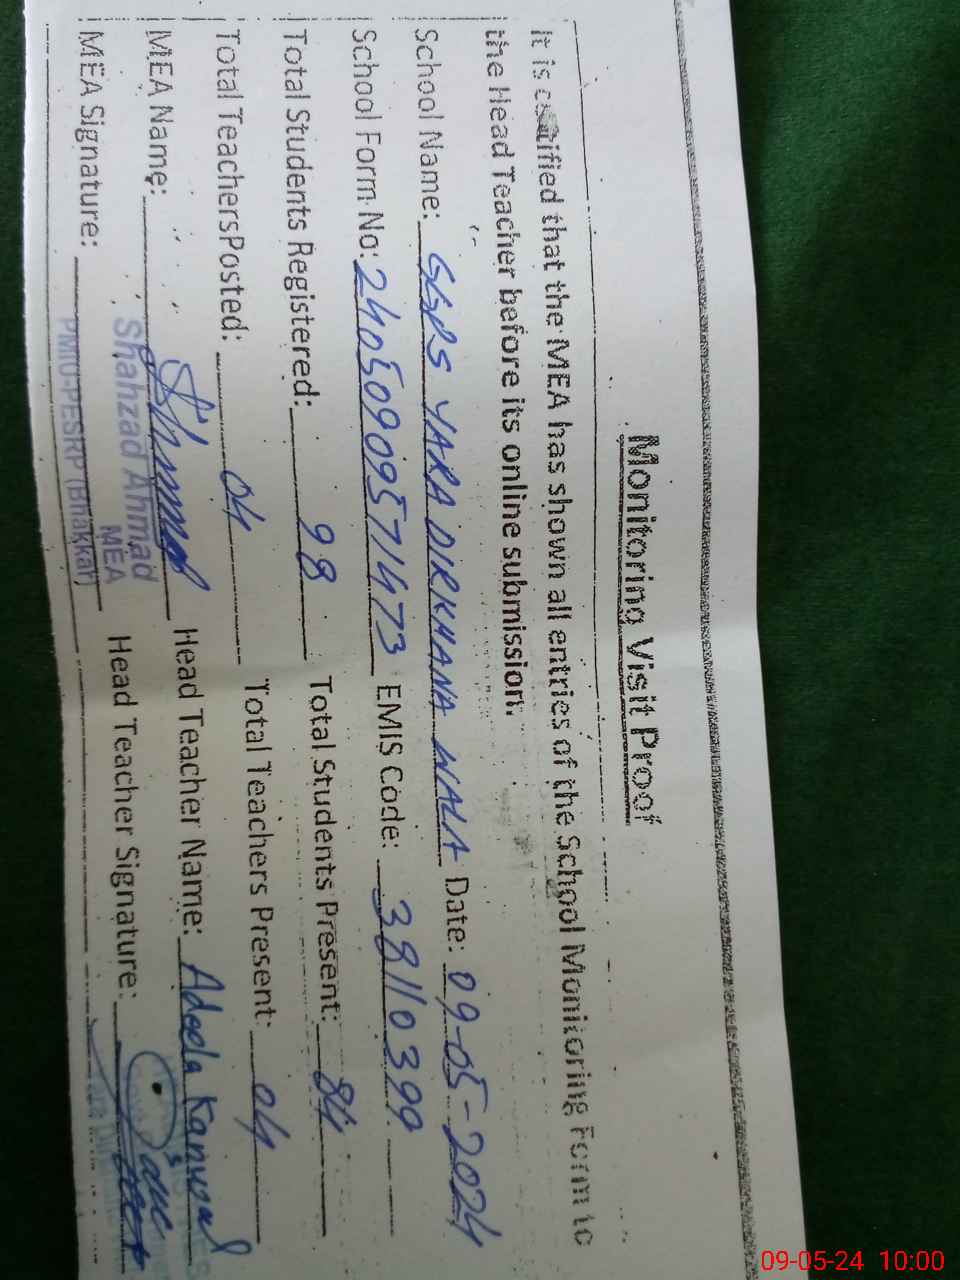 Monitoring Visit Proof
It is certified that the MEA has shown all entries of the School Monitoring Form to
the Head Teacher before its online submission.
School Name: GGPS YARA DIRKHANA WALA Date: 09-05-2024
School Form No: 24050909571473 EMIS Code: 38110399
Total Students Registered: 98 Total Students Present: 84
Total TeachersPosted: 04 Total Teachers Present: 04
MEA Name: Head Teacher Name: Adeela Kanwal
MEA Signature: Shahzad Ahmad Head Teacher Signature:
MEA
PMIU-PESRP (Bhakkar)
09-05-24 10:00